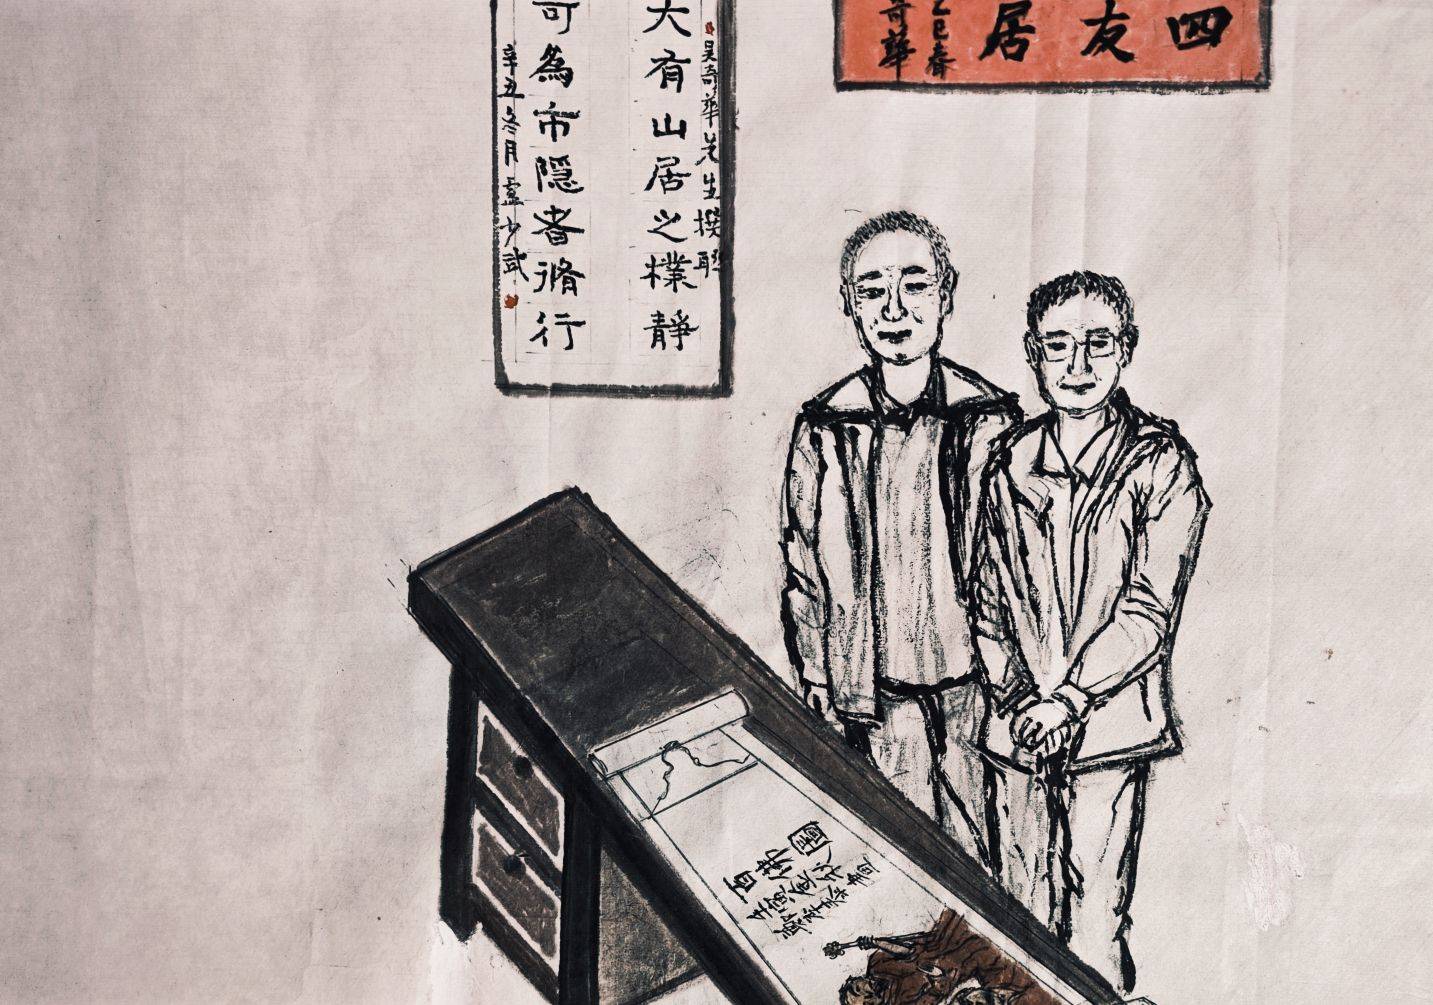 四友居
乙巳春
奇華
吳奇華先生撰聯
大有山居之樸靜
可為市隱者脩行
辛丑冬月盧少武
百佛圖